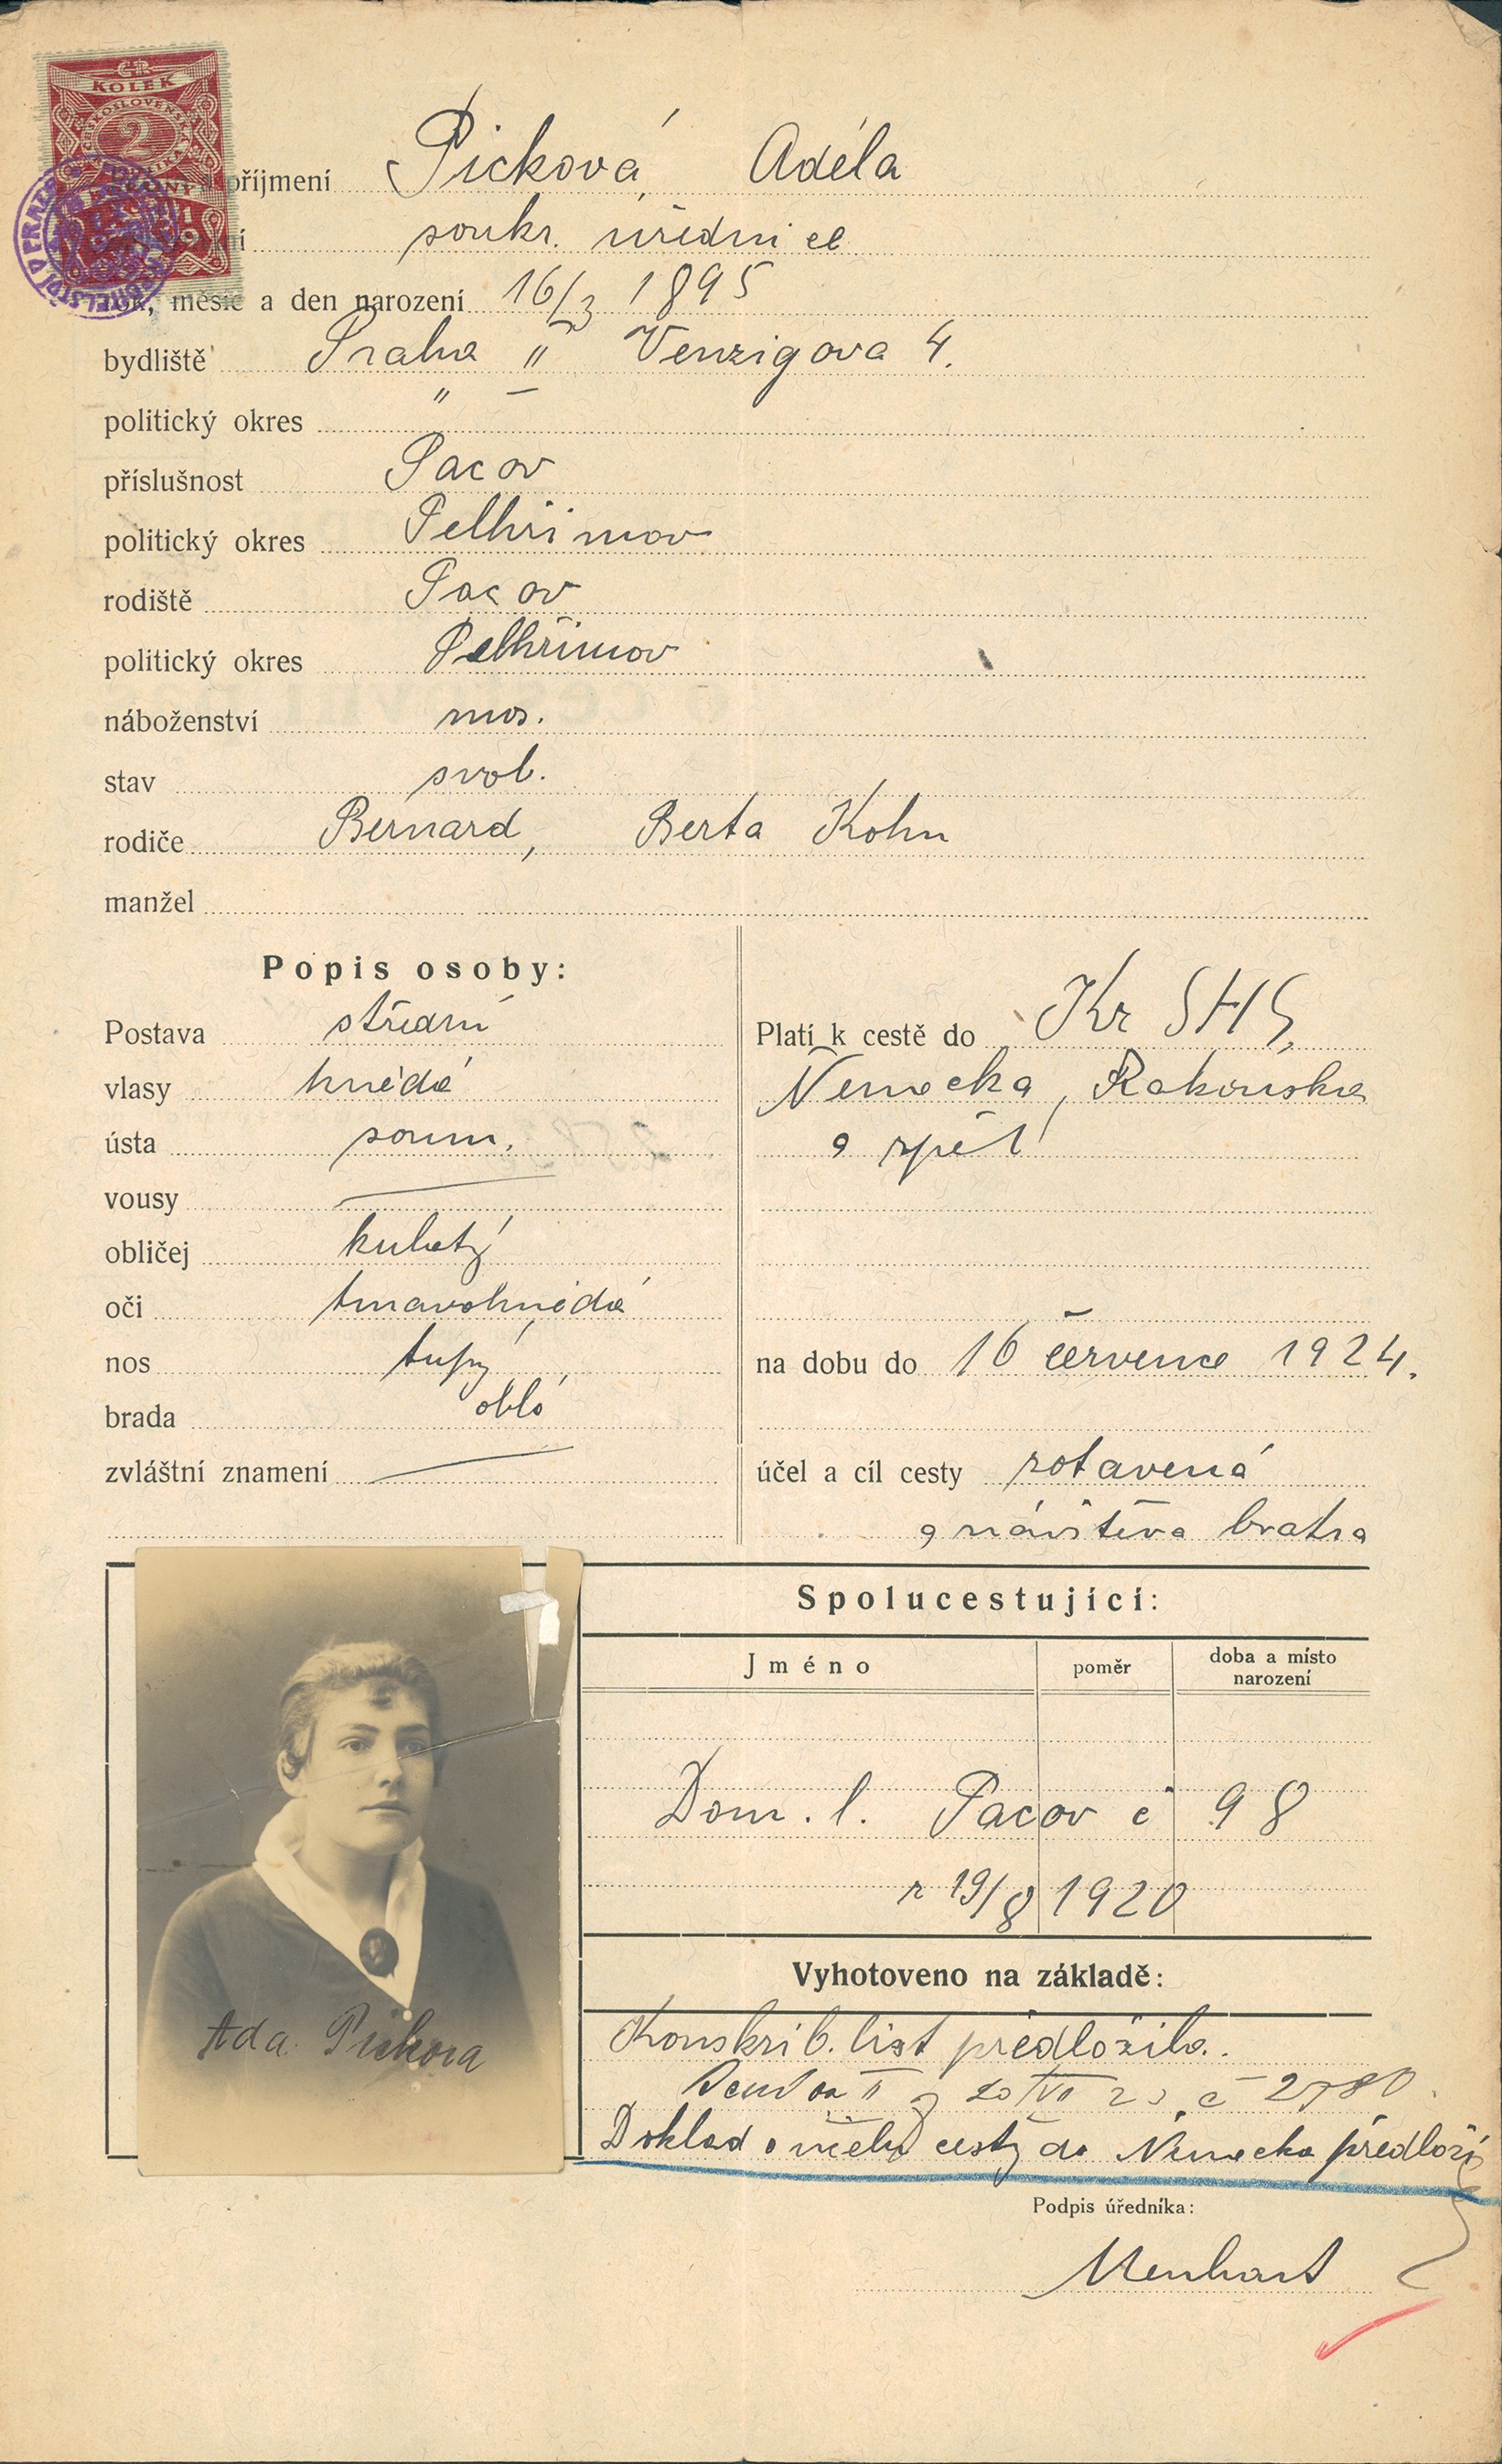 ČR
KOLEK
ČESKOSLOVENSKÁ
2
KORUNY
1919
příjmení Picková Adéla
soukr. úřednice
rok, měsíc a den narození 16/3 1895
bydliště Praha II Venzigova 4.
politický okres " –
příslušnost Pacov
politický okres Pelhřimov
rodiště Pacov
politický okres Pelhřimov
náboženství mos.
stav svob.
rodiče Bernard, Berta Kohn
manžel
Popis osoby:
Postava střední
vlasy hnědé
ústa soum.
vousy
obličej kulatý
oči tmavohnědé
nos tupý
brada oblá
zvláštní znamení
Platí k cestě do Kr SHS,
Německa, Rakouska
a zpět
na dobu do 16 července 1924.
účel a cíl cesty zotavená
a návštěva bratra
Spolucestující:
Jméno poměr doba a místo narození
Dom. l. Pacov č 98
z 19/8 1920
Ada Picková
Vyhotoveno na základě:
Konskrib. list předložila.
II z 20/VII 23 č 2780.
Doklad o účelu cesty do Německa předloží
Podpis úředníka:
Menhart